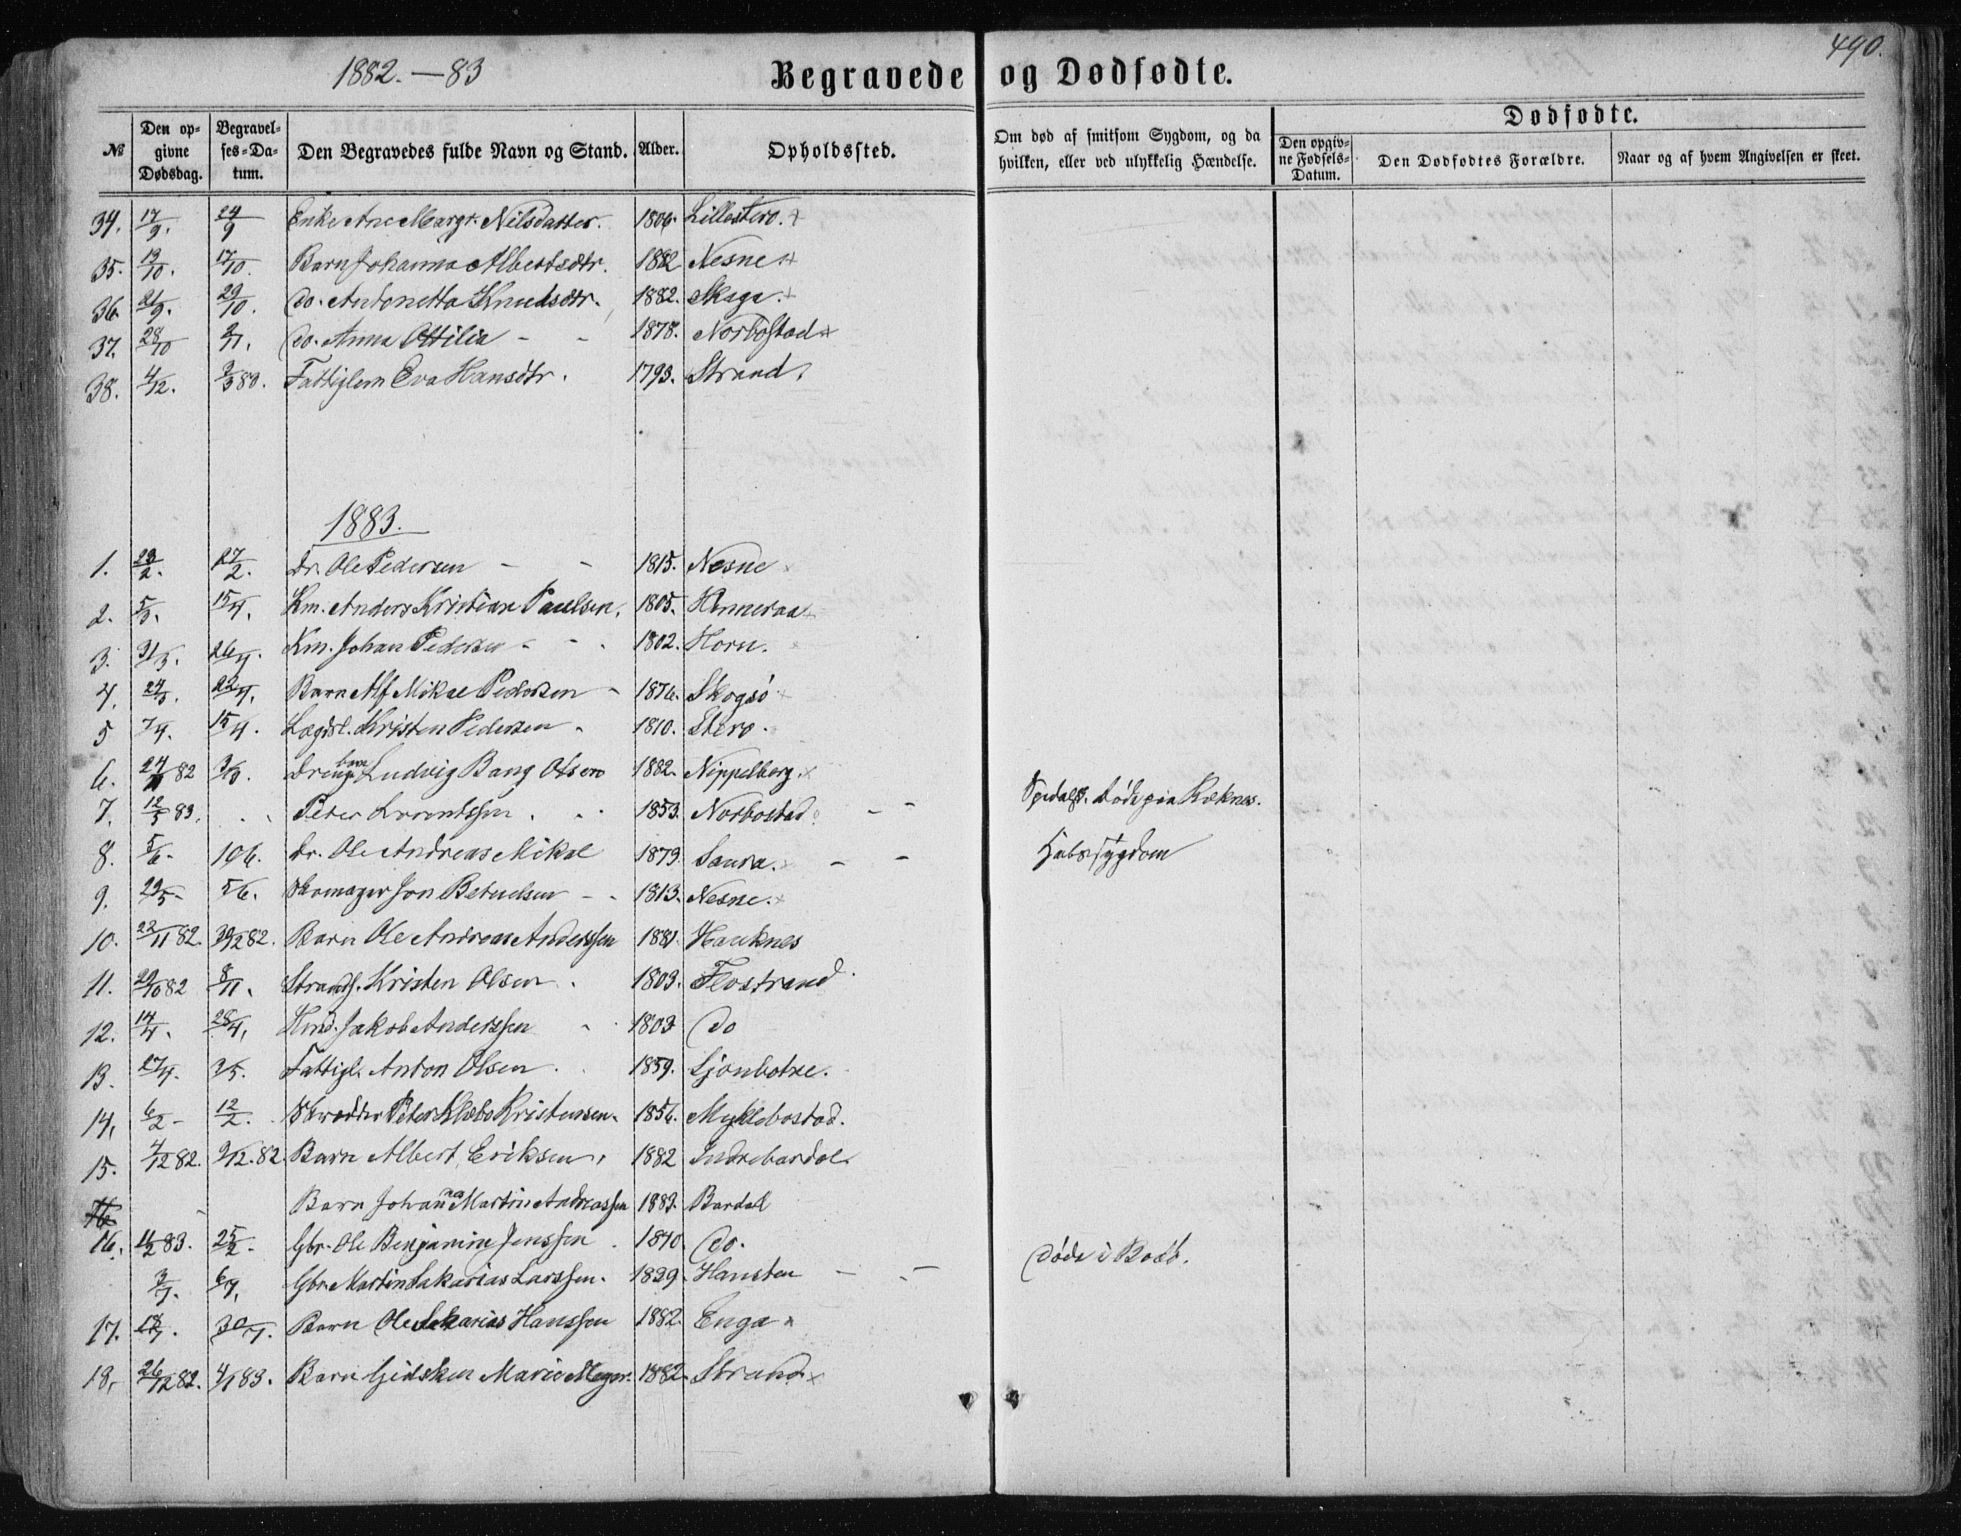 490.
1882.—83
Begravede og Dødfødte.
№
Den opgivne Dødsdag.
Begravelses-Datum.
Den Begravedes fulde Navn og Stand.
Alder.
Opholdssted.
Om død af smitsom Sygdom, og da hvilken, eller ved ulykkelig Hændelse.
Dødfødte.
Den opgivne Fødsels-Datum.
Den Dødfødtes Forældre.
Naar og af hvem Angivelsen er skeet.
34. 17/9. 24/9 Enke Ane Margr. Nilsdatter. 1806. Lillestero. +
35. 13/10. 17/10. Barn Johanna Albertsdtr. 1882 Nesne +
36. 21/9. 29/10. do. Antonetta Knudsdtr. 1882. Skaga. +
37. 28/10 2/11. do. Anna Ottilia - - 1878. Norbostad +
38. 4/12. 3/3 83. Fattiglem Eva Hansdtr. 1793. Strand.
1883.
1. 23/2. 27/2. Dr. Ole Pedersen - - 1815. Nesne
2. 5/3. 15/4. Km. Anders Kristian Paulsen. 1805. Hinneraa +
3. 31/3. 26/4. Km. Johan Pedersen - - 1802. Horn.
4. 24/3. 22/4. Barn Alf Mikal Pedersen - 1876. Skogsö
5 7/4. 15/4. Lægdsl. Kristen Pedersen - 1810. Stero.
6. 24/11 82 3/3. Dreng barn Ludvig Bang Olsen 1882. Nippelberg. x
7. 12/3 83. . . Peter Lorentssen . . 1853. Norbostad. - - Spedalsk. döde paa Reknes.
8. 5/6. 10/6. Dr. Ole Andreas Mikal 1873. Saura. - - Halssygdom
9. 29/5- 5/6. Skomager Jon Betuelsen - - 1813. Nesne.
10. 22/11 82. 30/12 82. Barn Ole Andreas Anderssen 1881. Hauknes
11. 29/10 82 8/11. Strands. Kristen Olsen . 1803. Flostrand
12. 14/4. 28/4. Kmd. Jakob Anderssen - 1803 do
13. 27/4. 3/5. Fattigl. Anton Olsen . 1859. Sjonbotne.
14. 6/2- 12/2. Skrædder Peter Klæbo Kristensen. 1856. Myklebostad.
15. 4/12 82. 9/12. 82. Barn Albert Eriksen. 1882 Indrebardal
16 Barn Johanna Martin Andreassen 1883. Bardal
16. 11/2 83. 25/2. Gbr. Ole Benjamin Jenssen . 1840 do.
3/7. 6/7. Gbr. Martin Sakarias Larssen. 1839. Hansten - - döde i Bodö.
17. 18/7. 30/7. Barn Ole Sakarias Hanssen 1882. Enga x
18. 26/12 82. 4/1 83. Barn Gidsken Marie Meyer. 1882. Strand x